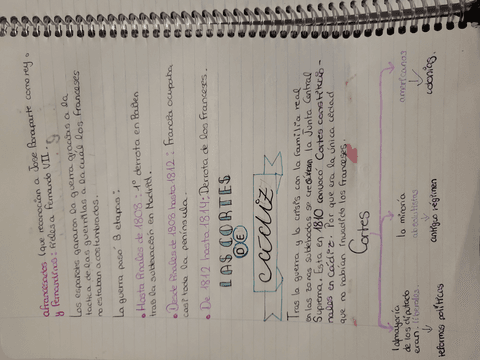 afrancesados (que reconocían a Jose Bonaparte como rey
y fernandinos: fieles a Fernando VII.
Los españoles ganaron la guerra gracias a la
tactica de las guerrillas a la cual los franceses
no estaban acostumbrados.
La guerra pasó 3 etapas:
• Hasta finales de 1808: 1º derrota en Bailén
tras la sublevación en Madrid.
• Desde finales de 1808 hasta 1812: Francia ocupaba
casi toda la península.
• De 1812 hasta 1814: Derrota de los franceses.
LAS CORTES
DE
cadiz
Tras la guerra y la crisis con la familia real
en las zonas sublevadas se crea la Junta Central
Suprema. Esta en 1810 convocó Cortes constitucio-
nales en Cádiz. Por que era la única ciudad
que no habían invadido los franceses.
Cortes
la mayoría
de los diputados
eran: liberales
reformas políticas
la minoria
absolutistas
antiguo régimen
americanos
colonias